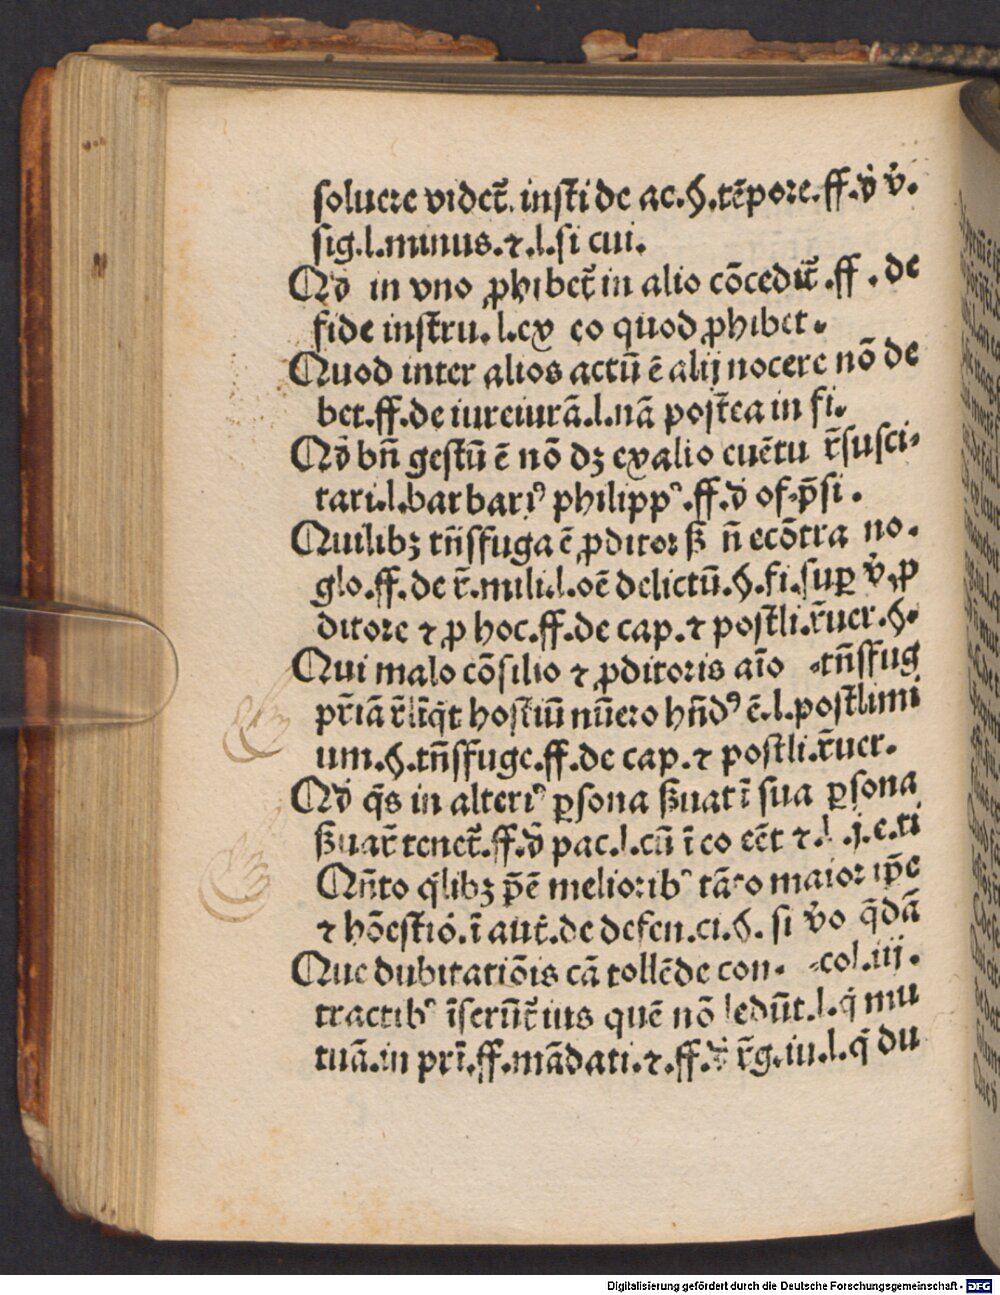 soluere videt᷑. insti de ac.§.tēpore.ff.d̕ v̕.
sig.l.minus.⁊.l.si cui.
Qd̕ in vno ꝓhibet᷑ in alio cōcedit᷑.ff.de
fide instru.l.ex eo quod ꝓhibet.
Quod inter alios actū ē alij nocere nō de
bet.ff.de iureiurā.l.nā postea in fi.
Qd̕ bn̄ gestū ē nō dꝫ exalio euētu r̄susci-
tari.l.barbariꝰ philippꝰ.ff.d̕ of.p̄si.
Quilibꝫ tn̄sfuga ē ꝓditor sꝫ n̄ ecōtra no.
glo.ff.de r̄.mili.l.oē delictū.§.fi.suꝑ v̕.ꝓ
ditore ⁊ ꝓ hoc.ff.de cap.⁊ postli.r̄uer.§.
Qui malo cōsilio ⁊ ꝓditoris aīo tn̄sfug
pr̄iā r̄liq̄t hostiū nūero hn̄dꝰ ē.l.postlimi
um.§.tn̄sfuge.ff.de cap.⁊ postli.r̄uer.
Qd̕ q̄s in alteriꝰ ꝑsona ẜuat ī sua ꝑsona
ẜuar̄ tenet᷑.ff.d̕ pac.l.cū ī eo eēt ⁊.l.j.e.ti
Qn̄to q̄libꝫ p̄e melioribꝰ tāto maior ip̄e
⁊ hōestio᷑.ī aut᷑.de defen.ci.§. si v̕o q̄dā
Que dubitatiōis cā tollēde con- col.iij.
tractibꝰ īserūt᷑ ius quē nō ledūt.l.q̄ mu
tuā.in pri̅.ff.mādati.⁊.ff.d̕ r̄g.iu.l.q̄ du
Digitalisierung gefördert durch die Deutsche Forschungsgemeinschaft - DFG